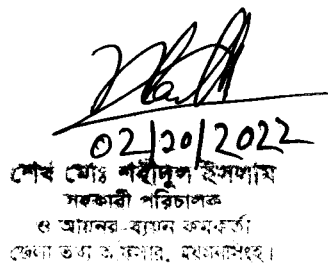 02/10/2022
শেখ মোঃ শহীদুল ইসলাম
সহকারী পরিচালক
ও আয়নব্যয়ন কর্মকর্তা
জেলা তথ্য অফিস, ময়মনসিংহ।